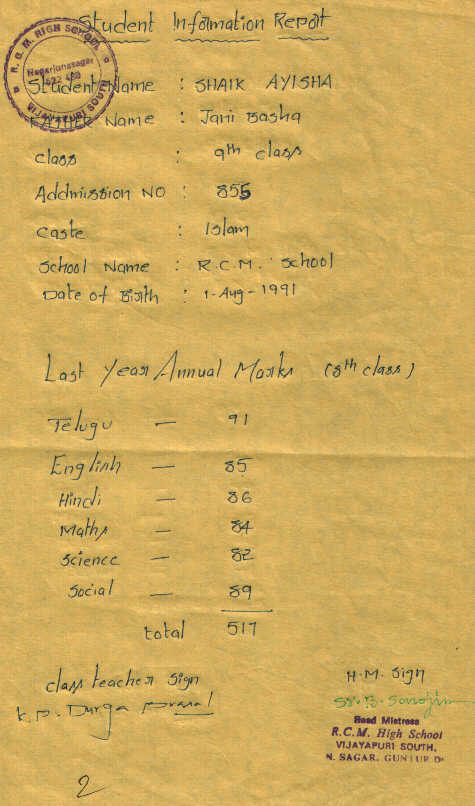 Student Information Report
R.C.M. HIGH SCHOOL
Nagarjunasagar
522 439
VIJAYAPURI SOUTH
Student Name : SHAIK AYISHA
FATHER Name : Jani Basha
class : 9th class
Addmission NO : 855
caste : Islam
School Name : R.C.M. School
Date of Birth : 1-Aug-1991
Last Year Annual Marks (8th class)
Telugu — 91
English — 85
Hindi — 86
Maths — 84
Science — 82
Social — 89
total 517
class teacher sign
H.M. Sign
K.P. Durga prasad
Sr. B. Sarojini
Head Mistress
R.C.M. High School
VIJAYAPURI SOUTH,
N. SAGAR. GUNTUR Dt
2